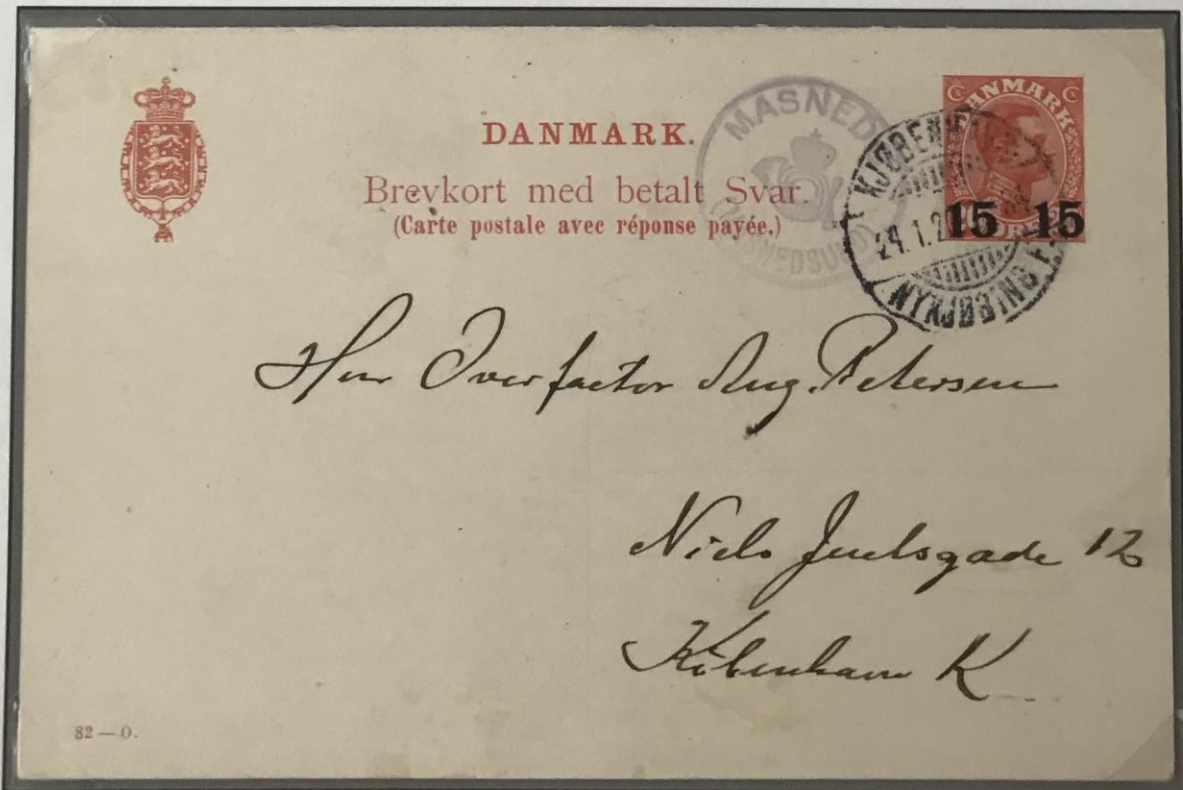 DANMARK.
Brevkort med betalt Svar.
(Carte postale avec réponse payée.)
MASNED
MASNEDSUND
DANMARK
15 15
KJØBENH
24.1.2
NYKJØBING F.
Herr Overfactor Aug. Petersen
Niels Juelsgade 12
København K
82 — O.